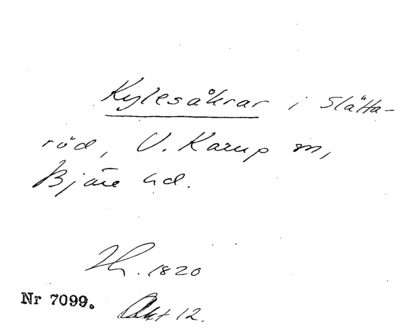 Kylesåkrar i Slätta-
röd, V. Karup sn,
Bjäre hd.
Lh. 1820
Nr 7099. Akt 12.